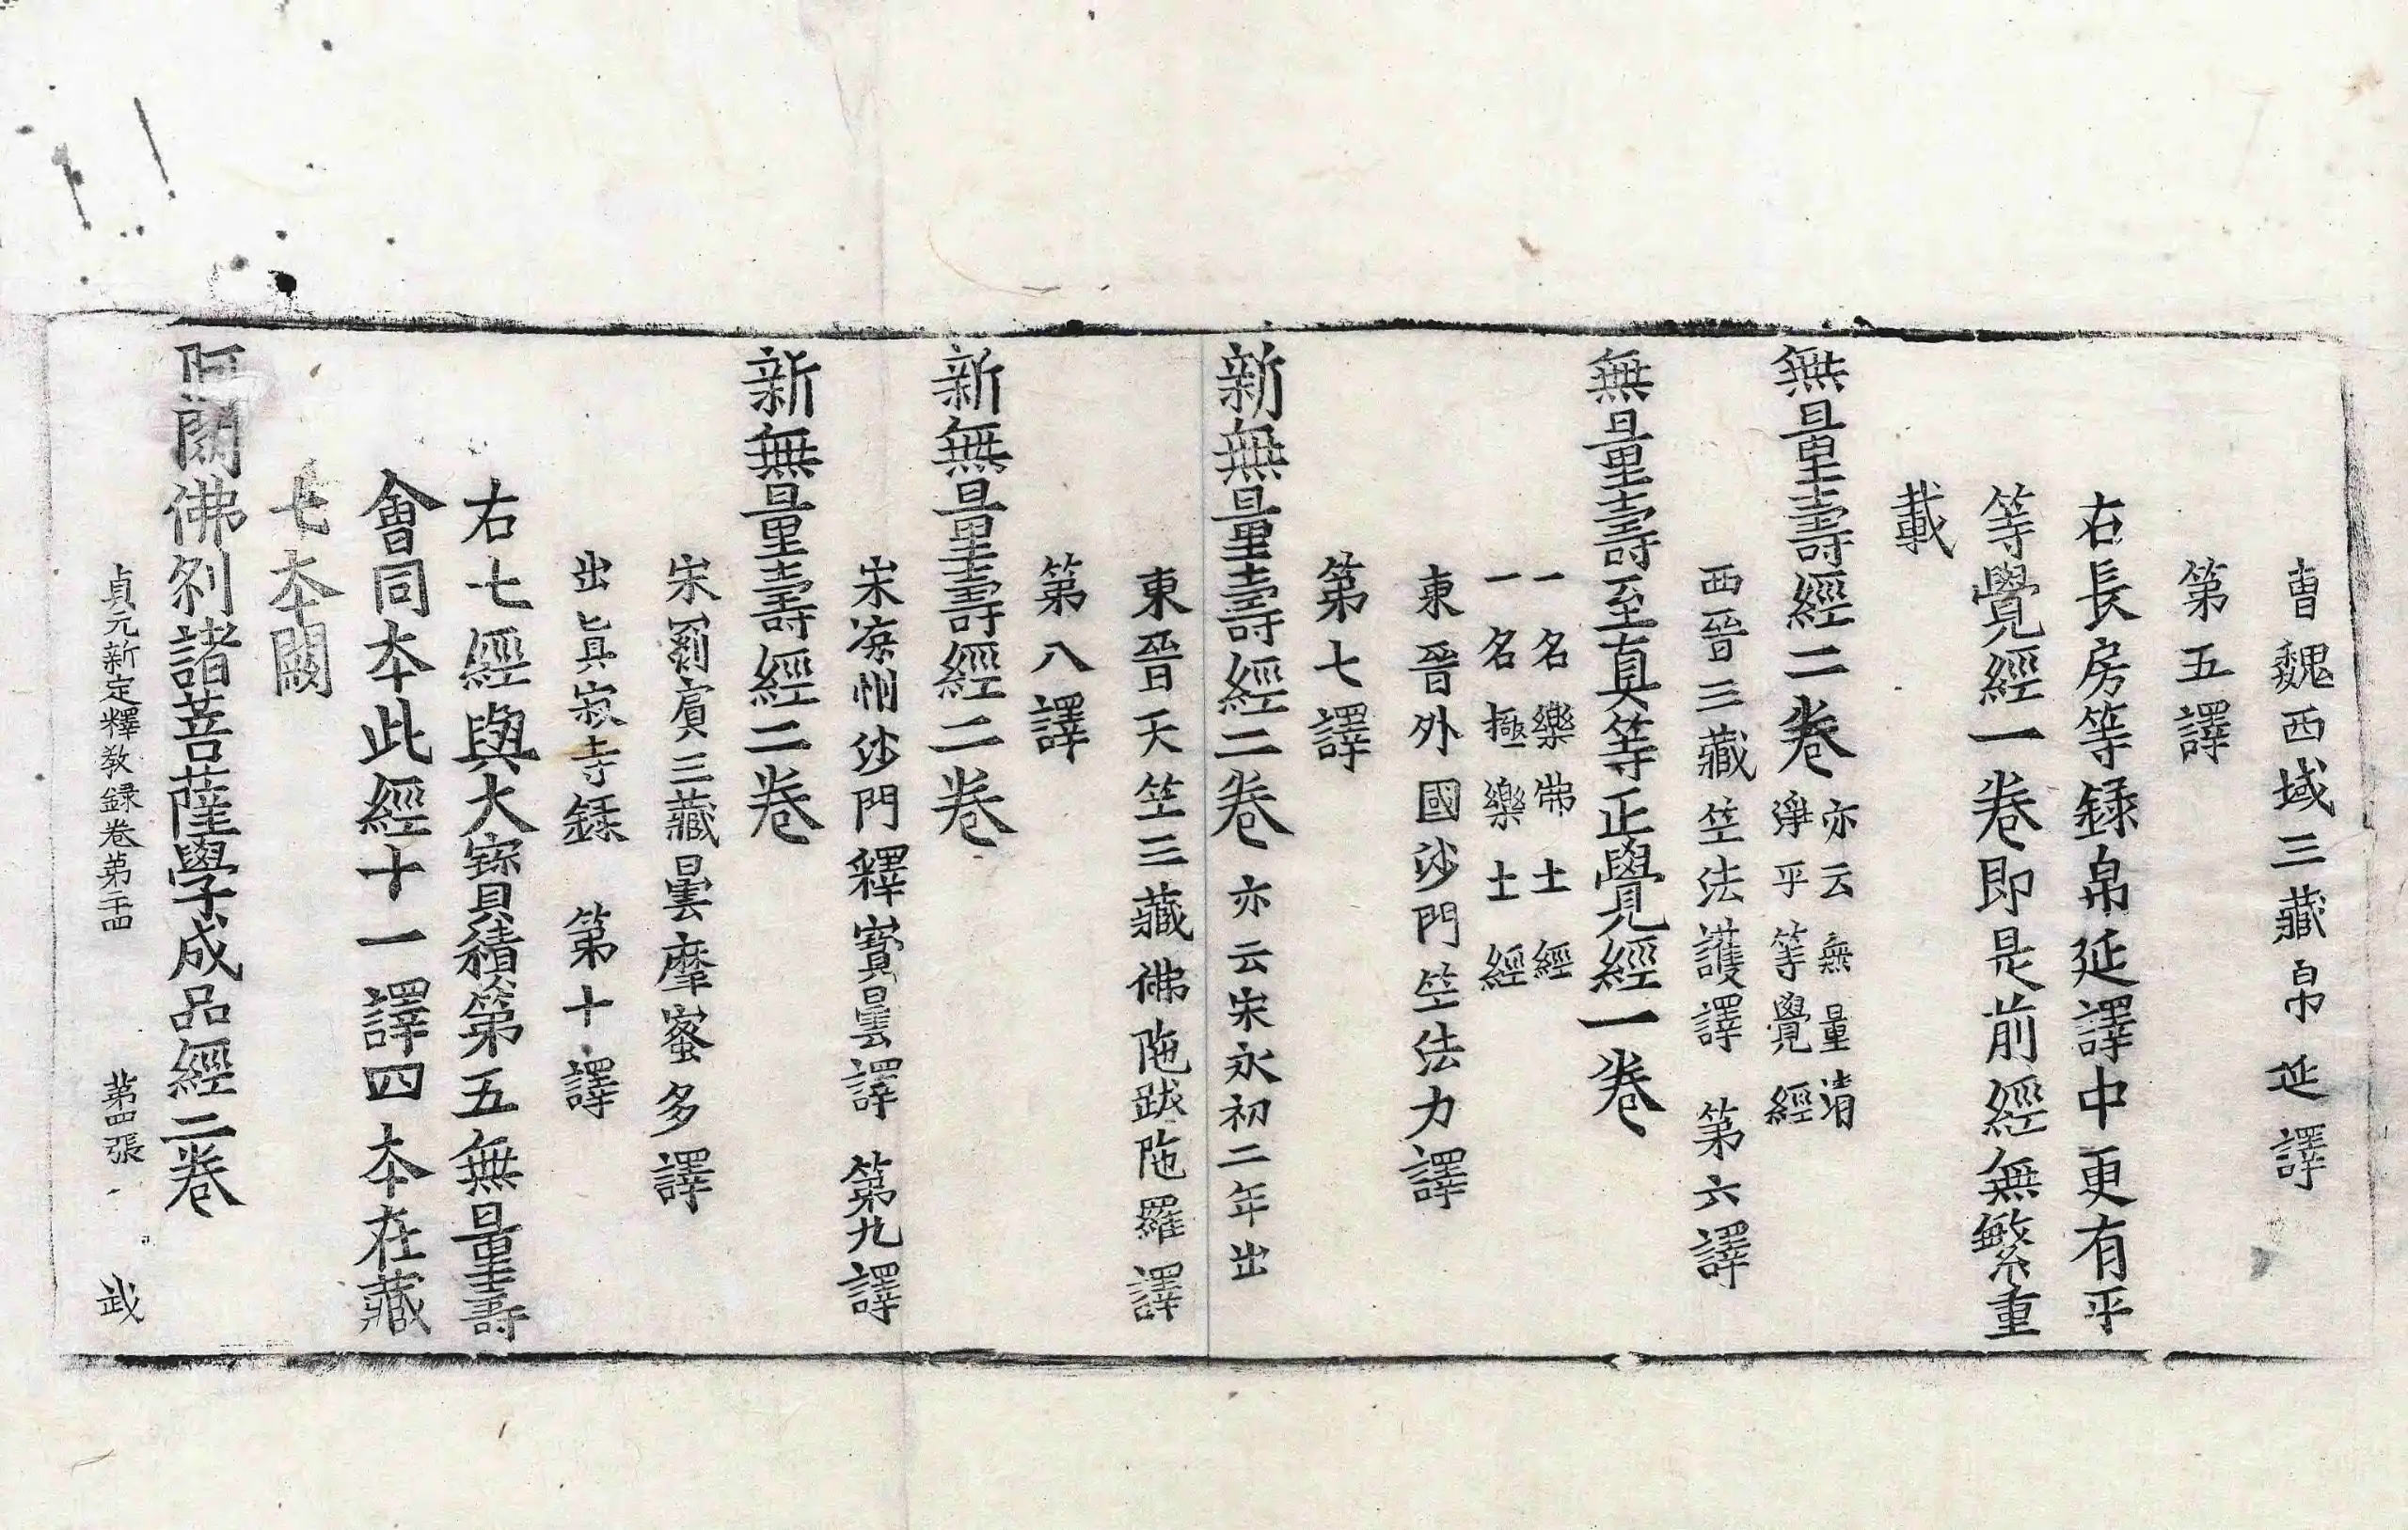 曹魏西域三藏帛延譯
第五譯
右長房等録帛延譯中更有平
等覺經一卷即是前經無繁重
載
無量壽經二卷亦云無量清
淨平等覺經
西晉三藏竺法護譯　第六譯
無量壽至真等正覺經一卷
一名樂佛土經
一名極樂土經
東晉外國沙門竺法力譯
第七譯
新無量壽經二卷亦云宋永初二年出
東晉天竺三藏佛陁跋陁羅譯
第八譯
新無量壽經二卷
宋涼州沙門釋寶雲譯　第九譯
新無量壽經二卷
宋罽賓三藏曇摩蜜多譯
出眞寂寺録　第十譯
右七經與大寳積第五無量壽
會同本此經十一譯四本在藏
七本闕
阿閦佛刹諸菩薩學成品經二卷
貞元新定釋教録卷第二十四　第四張　武